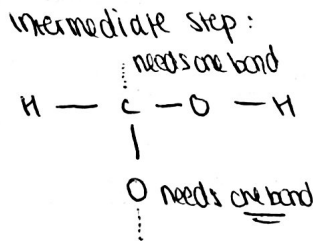 intermediate step:
needs one bond
H — C — O — H
O needs one bond